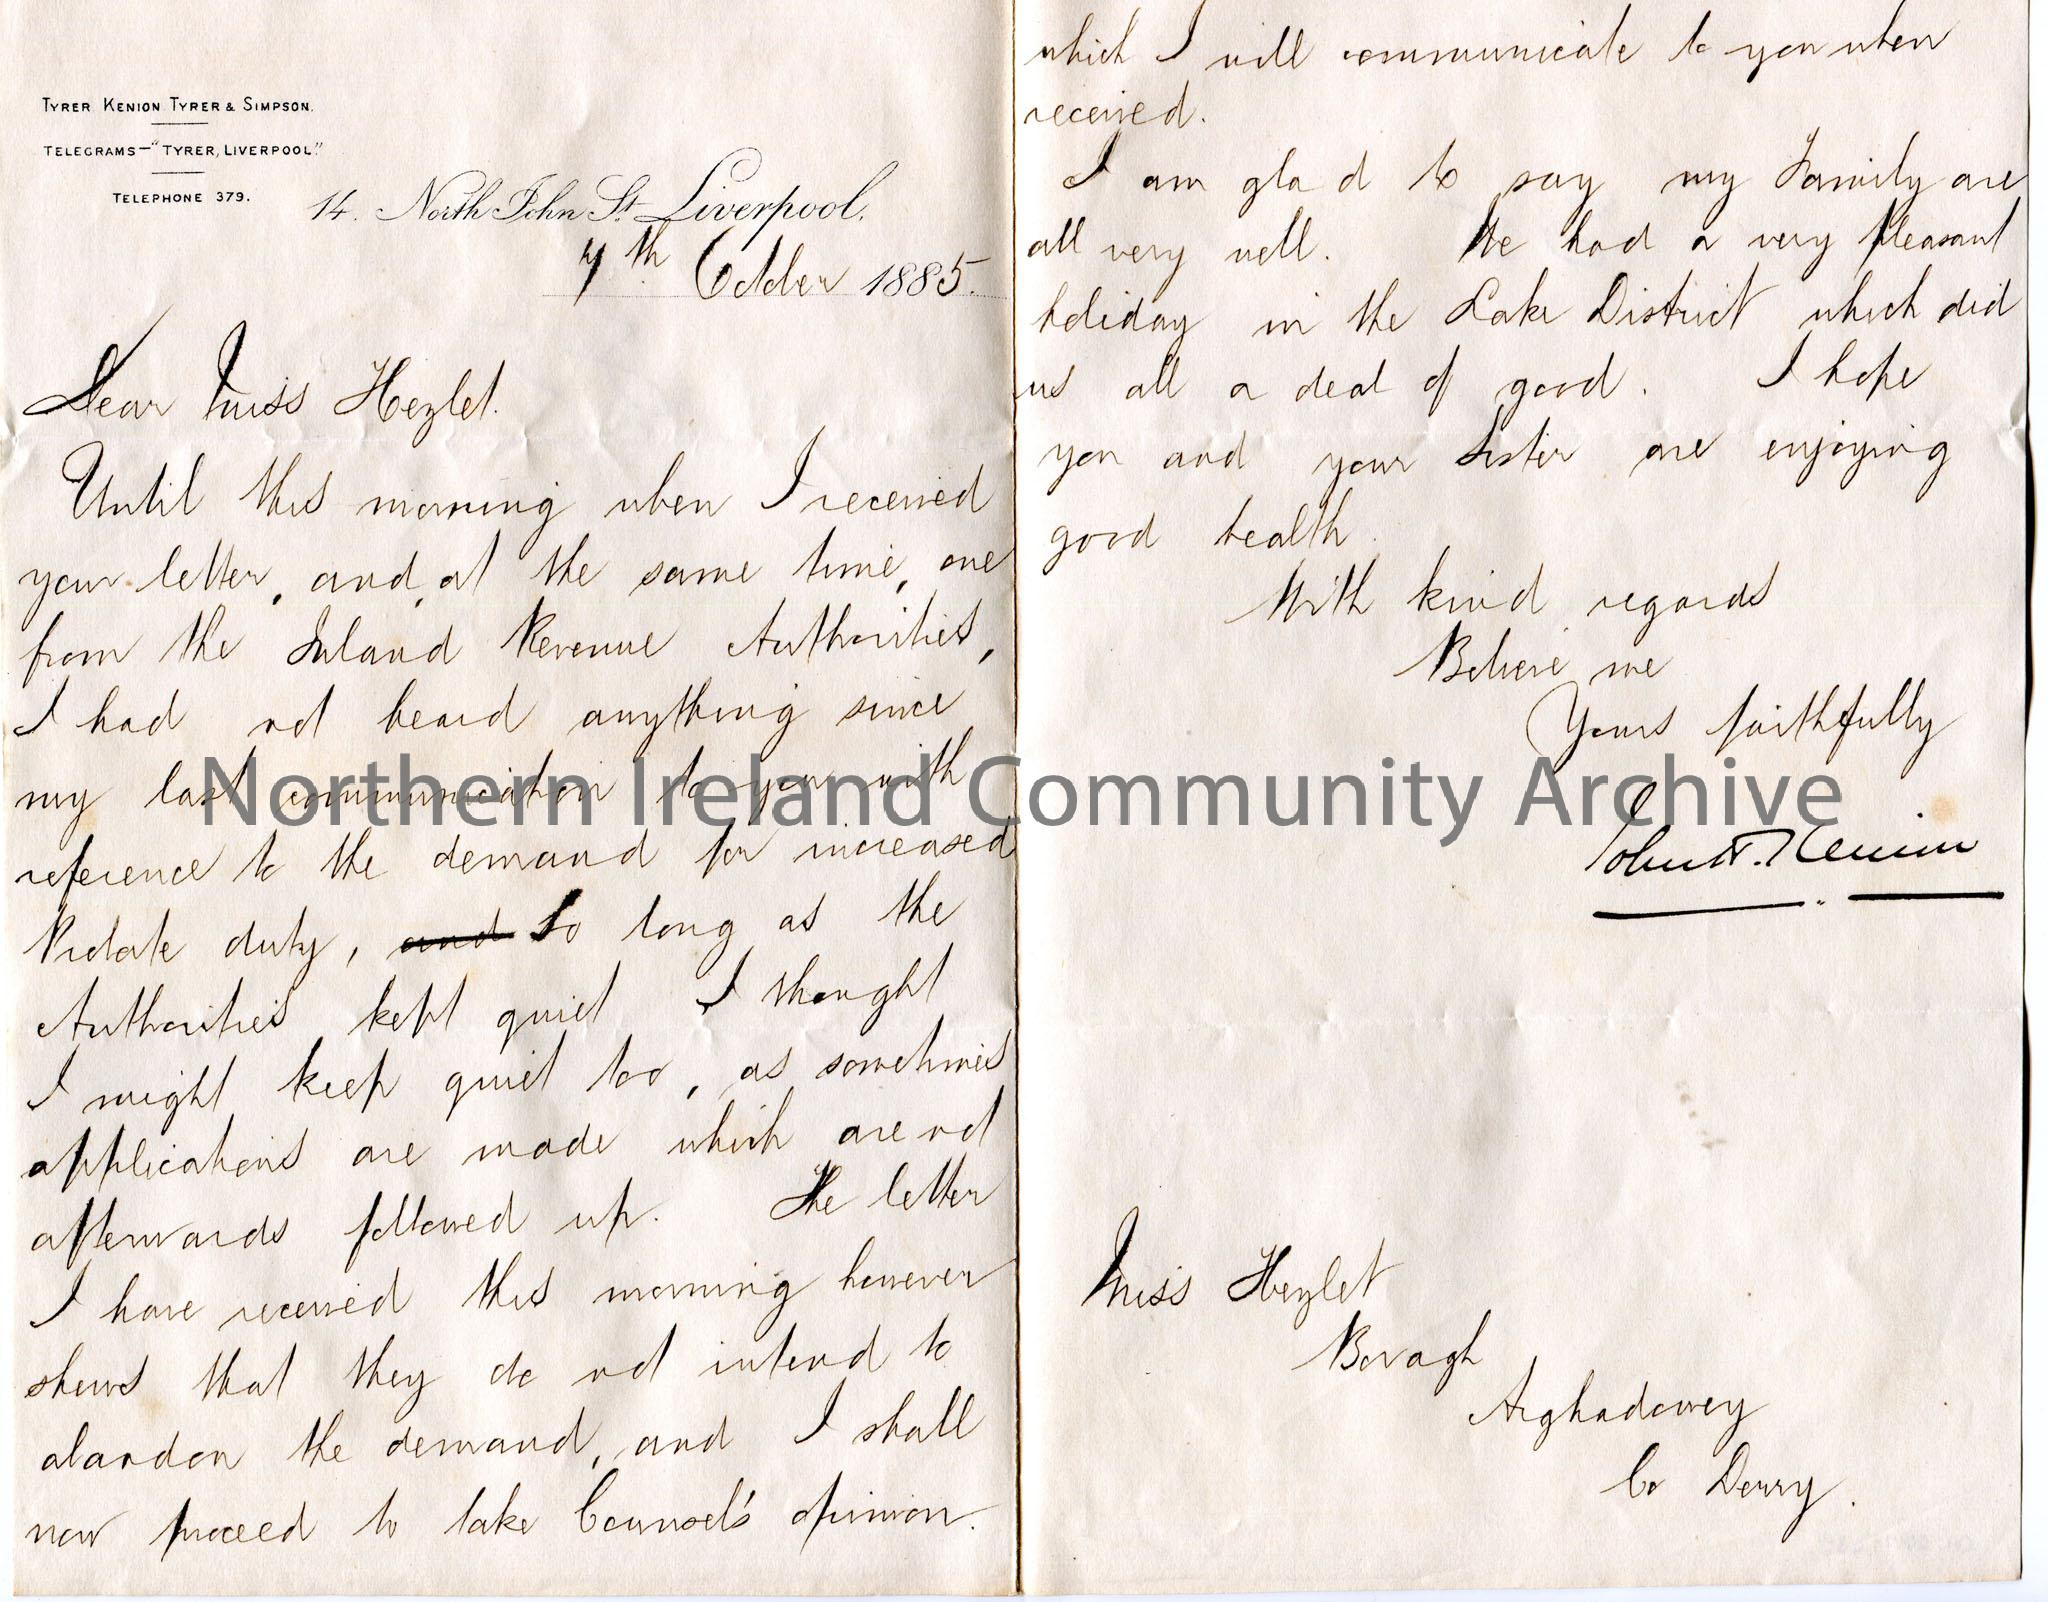 TYRER KENION TYRER & SIMPSON.
TELEGRAMS—"TYRER, LIVERPOOL."
TELEPHONE 379.
14. North John St. Liverpool.
7th October 1885.
Dear Miss Hezlet.
Until this morning when I received
your letter, and, at the same time, one
from the Inland Revenue Authorities,
I had not heard anything since
my last communication to you with
reference to the demand for increased
Probate duty, and So long as the
Authorities kept quiet I thought
I might keep quiet too, as sometimes
applications are made which are not
afterwards followed up. The letter
I have received this morning however
shews that they do not intend to
abandon the demand, and I shall
now proceed to take Counsel's opinion.
which I will communicate to you when
received.
I am glad to say my Family are
all very well. We had a very pleasant
holiday in the Lake District which did
us all a deal of good. I hope
you and your Sister are enjoying
good health.
With kind regards
Believe me
Yours faithfully
Kenion
Miss Hezlet
Bovagh
Aghadowey
Co Derry.
Northern Ireland Community Archive